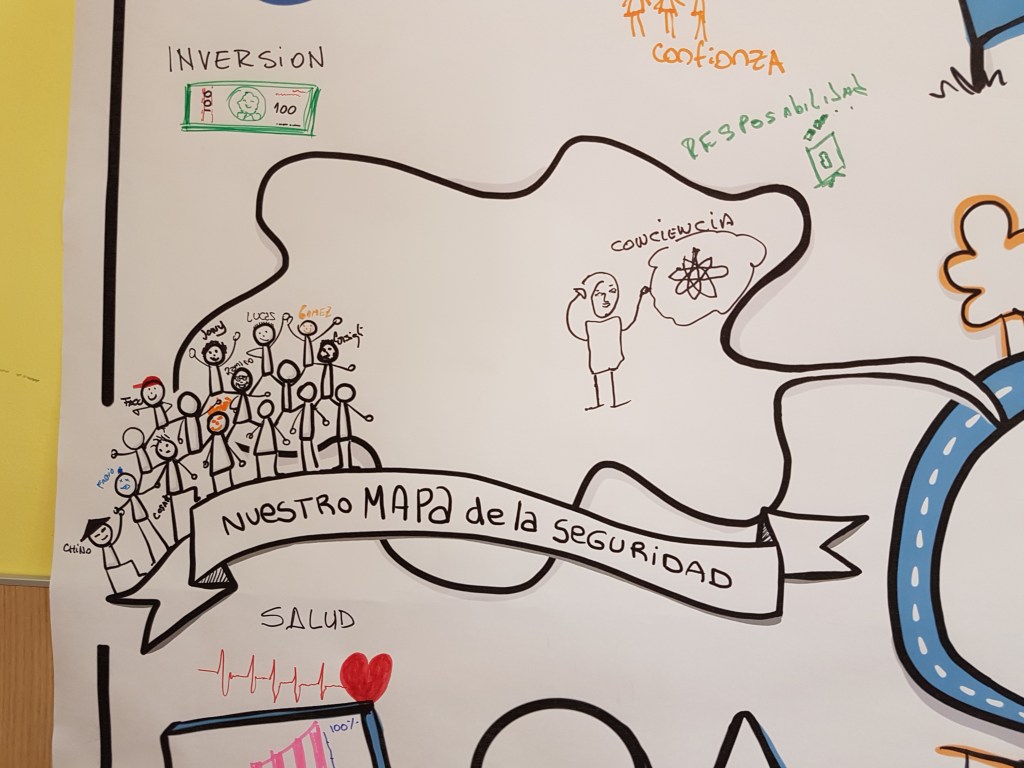 INVERSION
100
100
confianza
RESPOSAbiLiDAD
CONCIENCIA
JONY
LUCAS
GOMEZ
FACU
FABIO
CHINO
NUESTRO MAPa de la SEGURIDAD
SALUD
100%